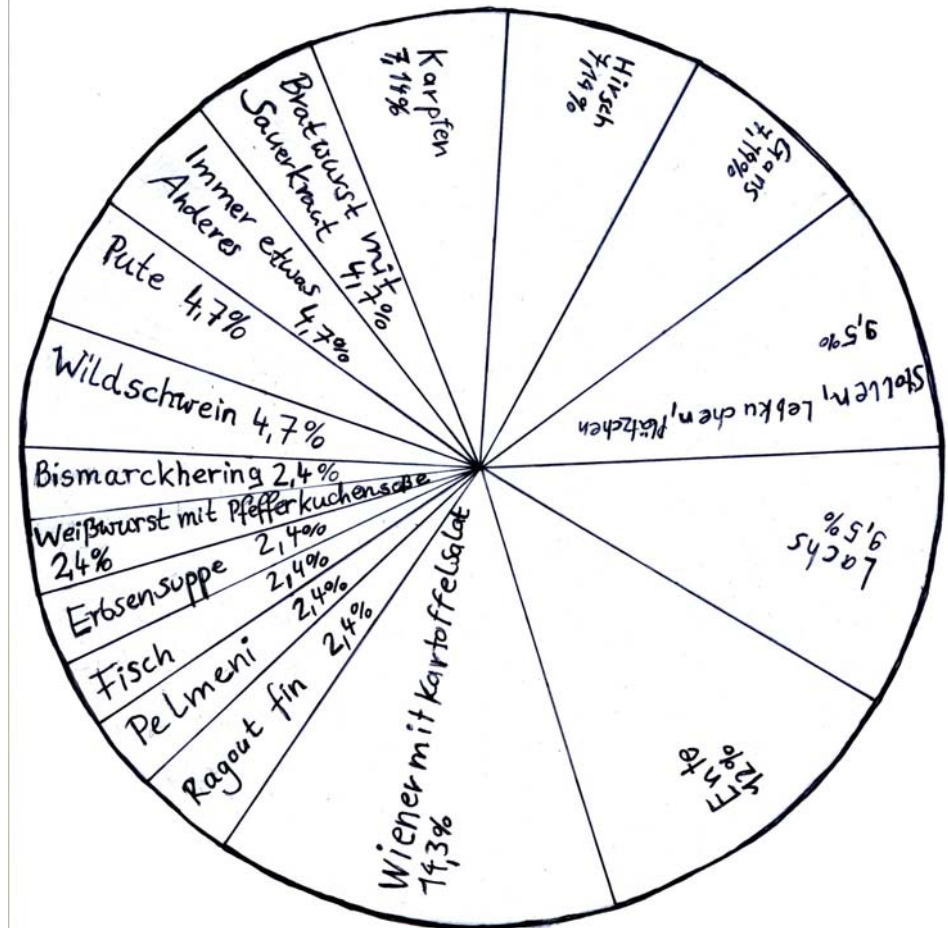 Karpfen
7,14%
Hirsch
7,14%
Gans
7,14%
9,5%
Stollen, Lebkuchen, Plätzchen
Lachs
9,5%
Ente
12%
Wiener mit Kartoffelsalat
14,3%
Ragout fin 2,4%
Pelmeni 2,4%
Fisch 2,4%
Erbsensuppe 2,4%
Weißwurst mit Pfefferkuchensoße
2,4%
Bismarckhering 2,4%
Wildschwein 4,7%
Pute 4,7%
Immer etwas 4,7%
Anderes
Bratwurst mit
Sauerkraut 4,7%